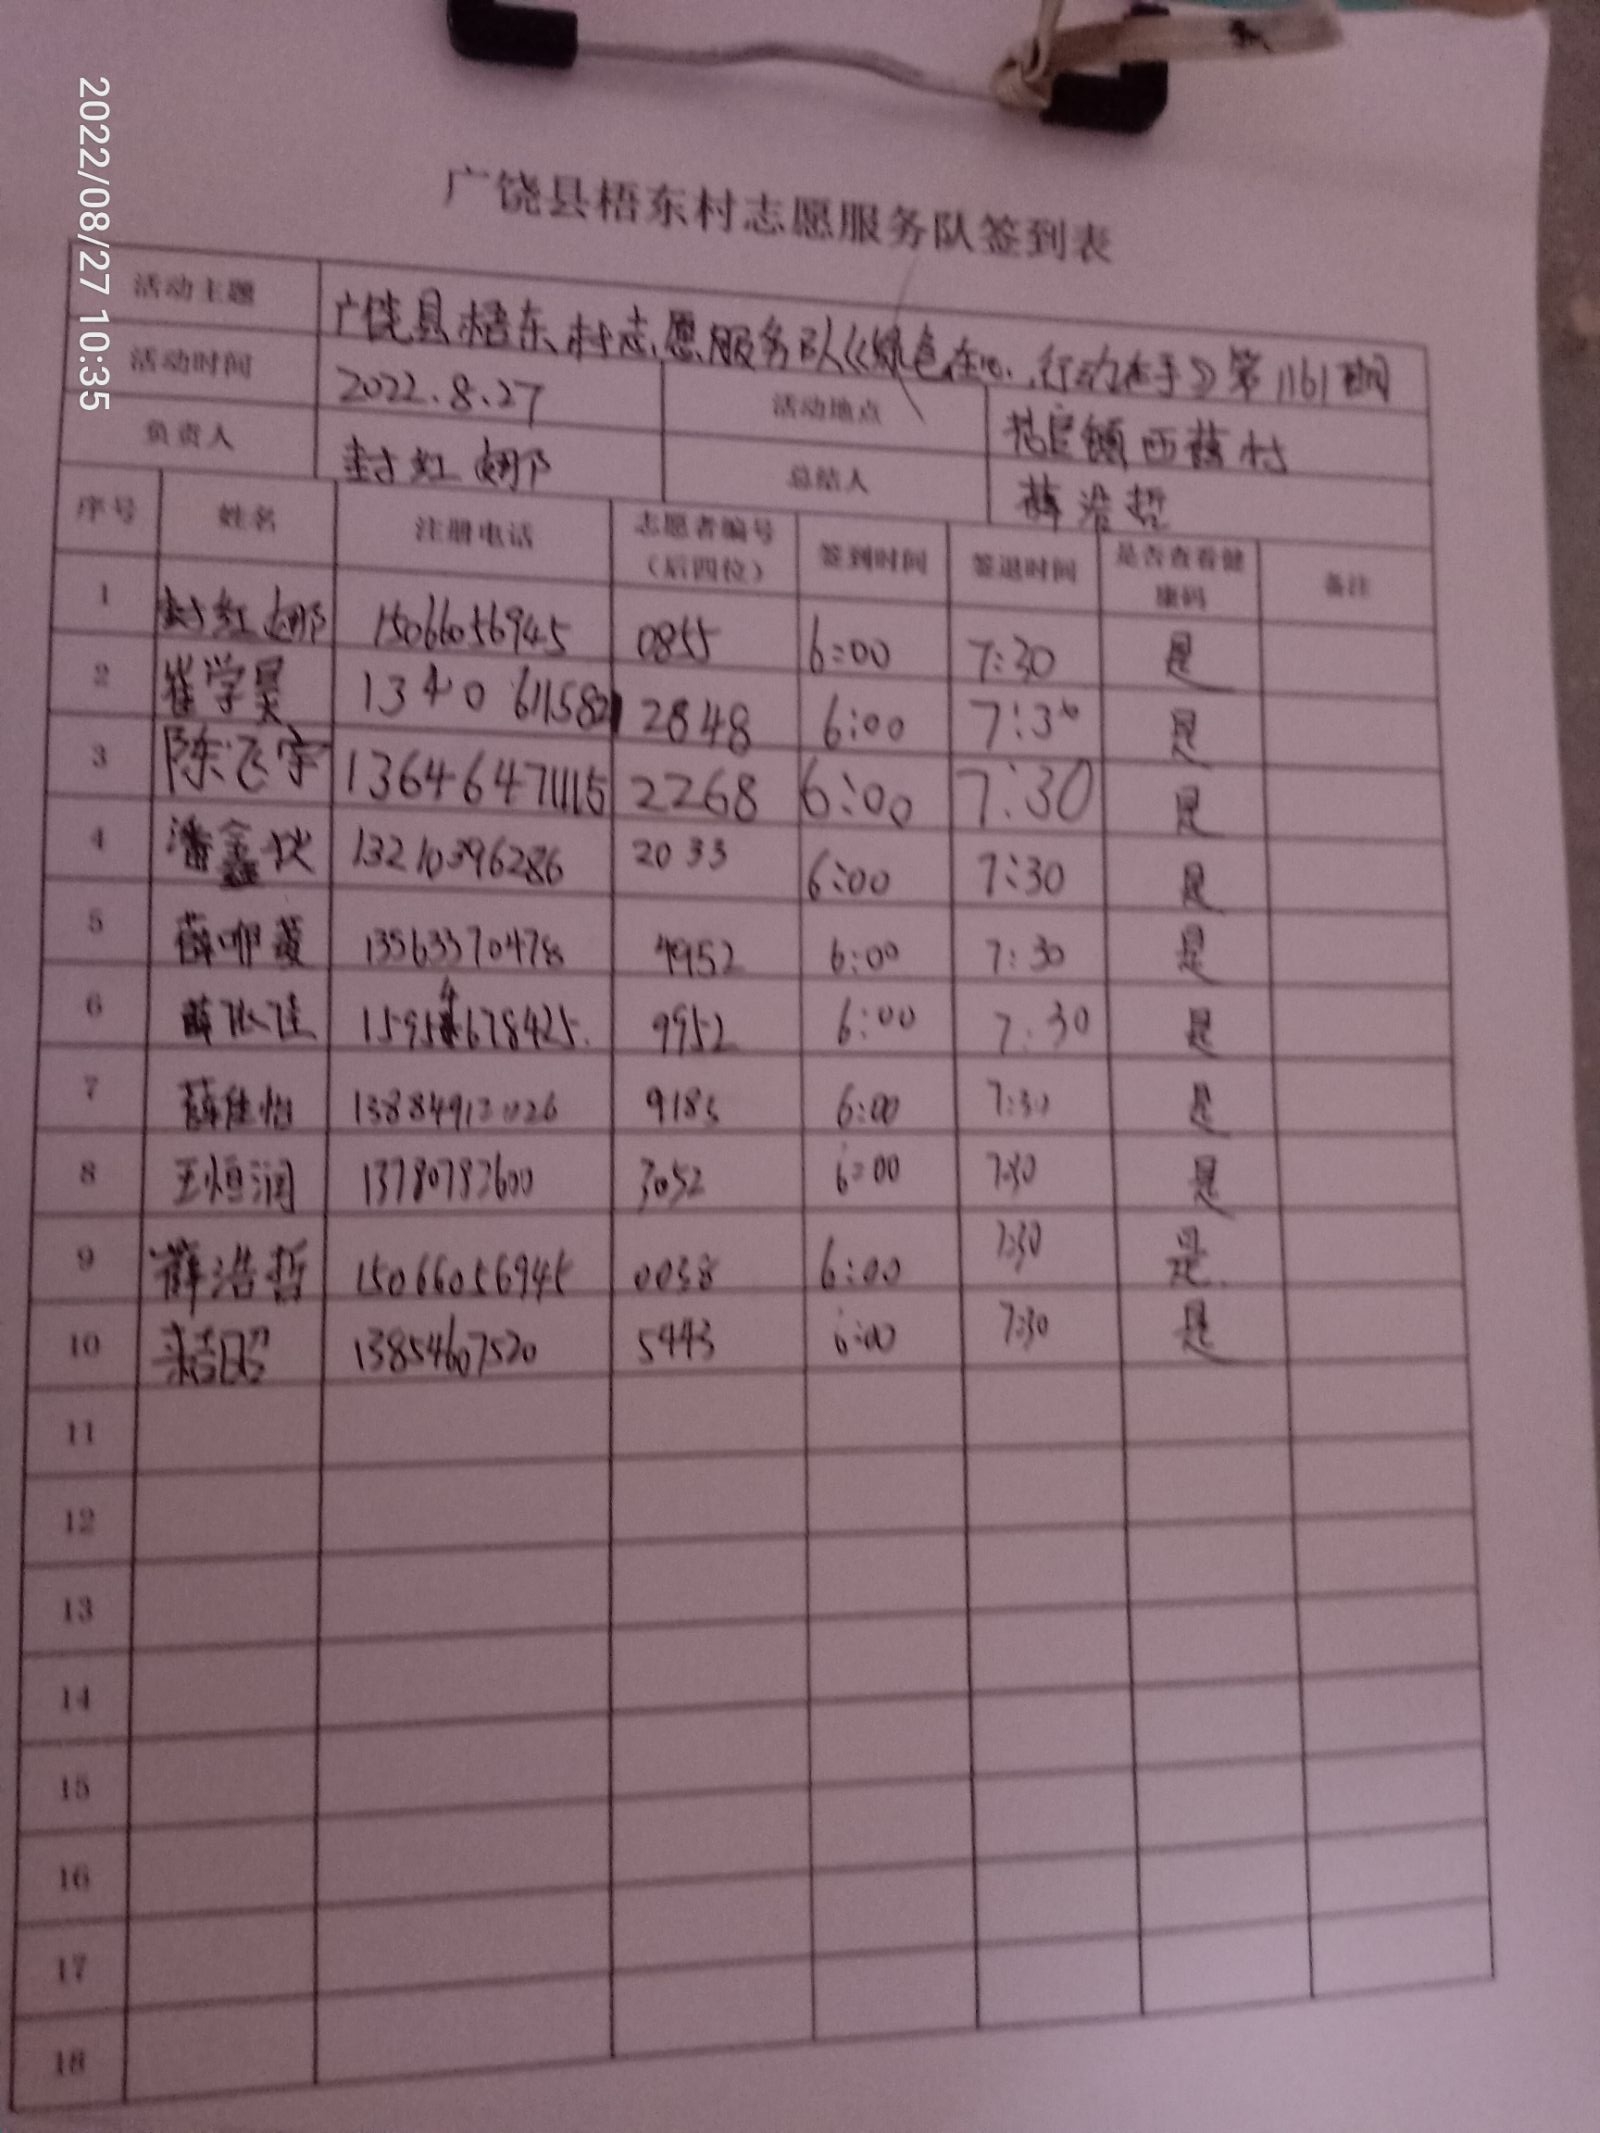 2022/08/27 10:35
广饶县梧东村志愿服务队签到表
活动主题 广饶县梧东村志愿服务队《绿色在心,行动在手》第1161期
活动时间 2022.8.27 活动地点 花官镇西薛村
负责人 封红娜 总结人 薛浩哲
序号 姓名 注册电话 志愿者编号（后四位） 签到时间 签退时间 是否查看健康码 备注
1 封红娜 15066056945 0855 6:00 7:30 是
2 崔学昊 13406115821 2848 6:00 7:30 是
3 陈飞宇 13646471115 2268 6:00 7:30 是
4 潘鑫 13210396286 2033 6:00 7:30 是
5 薛 13563370478 4952 6:00 7:30 是
6 薛 15954678425. 9952 6:00 7:30 是
7 薛佳怡 13884912026 9185 6:00 7:30 是
8 王恒润 13780783600 3052 6:00 7:30 是
9 薛浩哲 15066056945 0038 6:00 7:30 是
10 13854607520 5443 6:00 7:30 是
11
12
13
14
15
16
17
18